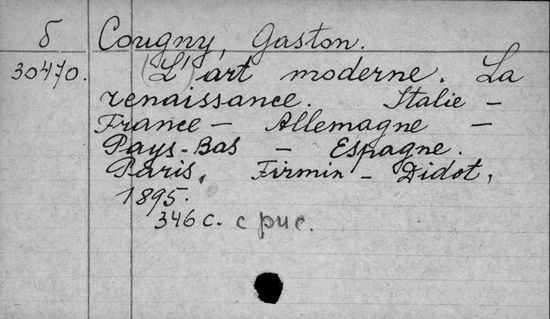 б Cougny, Gaston.
30470. (L')art moderne. La
renaissance. Italie –
France – Allemagne –
Pays-Bas – Espagne.
Paris, Firmin – Didot,
1895.
346 с. с рис.